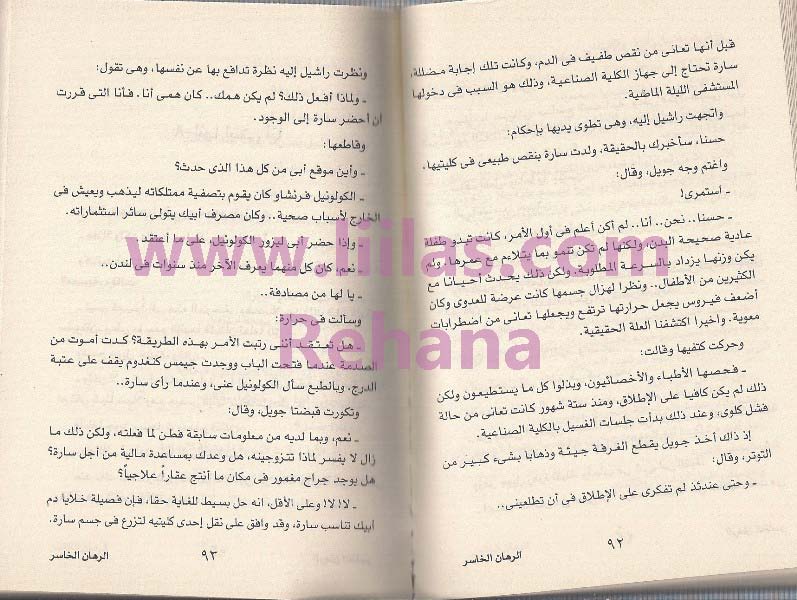 قبل أنها تعانى من نقص طفيف فى الدم، وكانت تلك إجابة مضللة،
سارة تحتاج إلى جهاز الكلية الصناعية، وذلك هو السبب فى دخولها
المستشفى الليلة الماضية.
واتجهت راشيل إليه، وهى تطوى يديها بإحكام:
حسنا، سأخبرك بالحقيقة، ولدت سارة بنقص طبيعى فى كليتيها.
واغتم وجه جويل، وقال:
ـ استمرى!
ـ حسنا.. نحن.. أنا.. لم أكن أعلم فى أول الأمر، كانت تبدو طفلة
عادية صحيحة البدن، ولكنها لم تكن تنمو بما يتلاءم مع عمرها، ولم
يكن وزنها يزداد بالسرعة المطلوبة، ولكن ذلك يحدث أحيانا مع
الكثيرين من الأطفال.. ونظرا لهزال جسمها كانت عرضة للعدوى وكان
أضعف فيروس يجعل حرارتها ترتفع ويجعلها تعانى من اضطرابات
معوية. واخيرا اكتشفنا العلة الحقيقية.
وحركت كتفيها وقالت:
ـ فحصها الأطباء والأخصائيون، وبذلوا كل ما يستطيعون ولكن
ذلك لم يكن كافيا على الإطلاق، ومنذ ستة شهور كانت تعانى من حالة
فشل كلوى، وعند ذلك بدأت جلسات الغسيل بالكلية الصناعية.
إذ ذاك أخذ جويل يقطع الغرفة جيئة وذهابا بشىء كبير من
التوتر، وقال:
ـ وحتى عندئذ لم تفكرى على الإطلاق فى أن تطلعينى..
٩٢
الرهان الخاسر
ونظرت راشيل إليه نظرة تدافع بها عن نفسها، وهى تقول:
ـ ولماذا أفعل ذلك؟ لم يكن همك.. كان همى أنا. فأنا التى قررت
أن أحضر سارة إلى الوجود.
وقاطعها:
ـ وأين موقع أبى من كل هذا الذى حدث؟
ـ الكولونيل فرنشاو كان يقوم بتصفية ممتلكاته ليذهب ويعيش فى
الخارج لأسباب صحية.. وكان مصرف أبيك يتولى سائر استثماراته.
ـ وإذا حضر أبى ليزور الكولونيل، على ما أعتقد
ـ نعم، كان كل منهما يعرف الآخر منذ سنوات فى لندن..
ـ يا لها من مصادفة..
وسألت فى حرارة:
ـ هل تعتقد أننى رتبت الأمر بهذه الطريقة؟ كدت أموت من
الصدمة عندما فتحت الباب ووجدت جيمس كنغدوم يقف على عتبة
الدرج، وبالطبع سأل الكولونيل عنى، وعندما رأى سارة..
وتكورت قبضتا جويل، وقال:
ـ نعم، وبما لديه من معلومات سابقة فطن لما فعلته، ولكن ذلك ما
زال لا يفسر لماذا تتزوجينه، هل وعدك بمساعدة مالية من أجل سارة؟
هل يوجد جراح مغمور فى مكان ما أنتج عقاراً علاجياً؟
ـ لا! لا! وعلى الأقل، انه حل بسيط للغاية حقا، فإن فصيلة خلايا دم
أبيك تناسب سارة، وقد وافق على نقل إحدى كليتيه لتزرع فى جسم سارة.
٩٣
الرهان الخاسر
www.liilas.com
Rehana